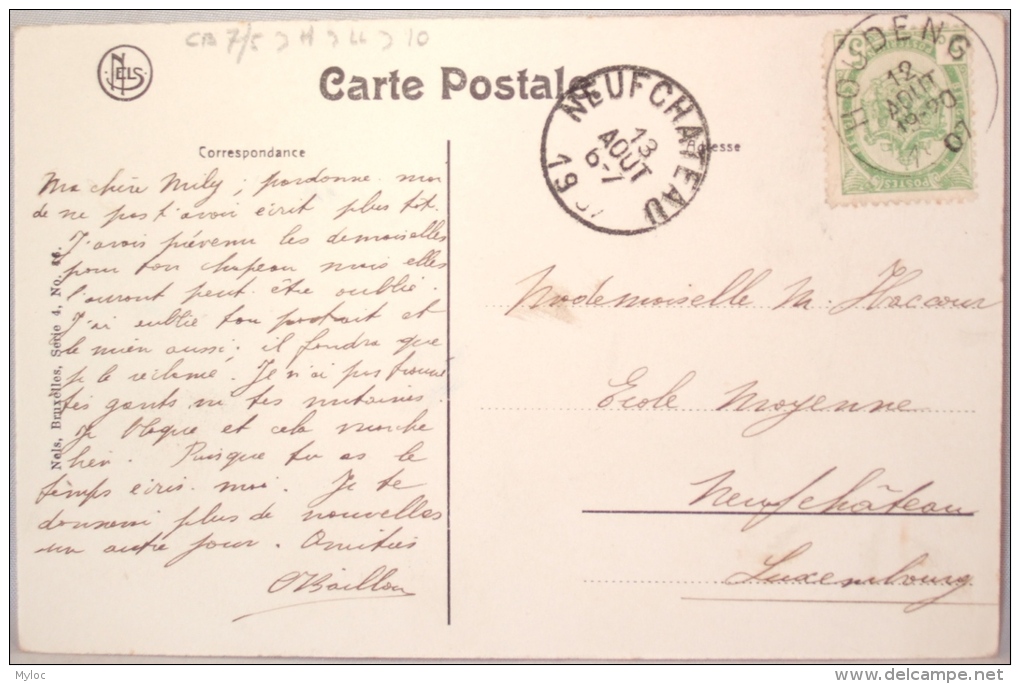 CB 7/5
NELS
Carte Postale
NEUFCHATEAU
13
AOUT
6-7
19
HOUDENG
12
AOUT
19-20
07
POSTES
Correspondance
Adresse
Ma chère Mily, pardonne moi
de ne pas t'avoir écrit plus tôt.
J'avais prévenu les demoiselles
pour ton chapeau mais elles
l'auront peut être oublié.
J'ai oublié ton portrait et
le mien aussi; il faudra que
je le réclame. Je n'ai pas trouvé
tes gants ni tes mitaines.
Je bloque et cela marche
bien. Puisque tu as le
temps écris moi. Je te
donnerai plus de nouvelles
un autre jour. Amitiés
Nels, Bruxelles, Série 4, No.
Mademoiselle M. Haccour
Ecole Moyenne
Neufchâteau
Luxembourg
Myloc
delcampe.net